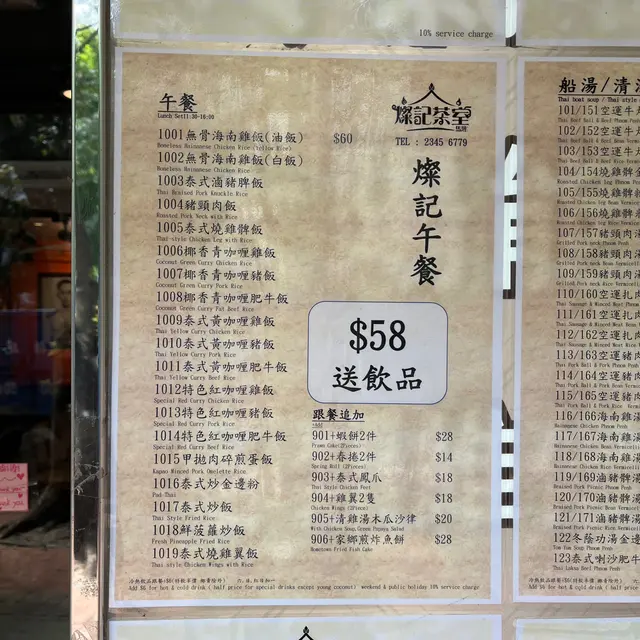 10% service charge
午餐
Lunch Set11:30-16:00
1001無骨海南雞飯(油飯) $60
Boneless Hainanese Chicken Rice (Yellow Rice)
1002無骨海南雞飯(白飯)
Boneless Hainanese Chicken Rice
1003泰式滷豬脾飯
Thai Braised Pork Knuckle Rice
1004豬頸肉飯
Roasted Pork Neck with Rice
1005泰式燒雞髀飯
Thai-style Chicken Leg with Rice
1006椰香青咖喱雞飯
Coconut Green Curry Chicken Rice
1007椰香青咖喱豬飯
Coconut Green Curry Pork Rice
1008椰香青咖喱肥牛飯
Coconut Green Curry Fat Beef Rice
1009泰式黃咖喱雞飯
Thai Yellow Curry Chicken Rice
1010泰式黃咖喱豬飯
Thai Yellow Curry Pork Rice
1011泰式黃咖喱肥牛飯
Thai Yellow Curry Beef Rice
1012特色紅咖喱雞飯
Special Red Curry Chicken Rice
1013特色紅咖喱豬飯
Special Red Curry Pork Rice
1014特色紅咖喱肥牛飯
Special Red Curry Beef Rice
1015甲抛肉碎煎蛋飯
Kapao Minced Pork Omelette Rice
1016泰式炒金邊粉
Pad-Thai
1017泰式炒飯
Thai Style Fried Rice
1018鮮菠蘿炒飯
Fresh Pineapple Fried Rice
1019泰式燒雞翼飯
Thai-style Chicken Wings with Rice
燦記茶室
TEL : 2345 6779
燦記午餐
$58
送飲品
跟餐追加
+add
901+蝦餅2件 $28
Prawn Cake(2Pieces)
902+春捲2件 $14
Spring Roll (2Pieces)
903+泰式鳳爪 $18
Thai Style Chicken Feet
904+雞翼2隻 $18
Chicken Wings (2Piece)
905+清雞湯木瓜沙律 $20
With Chicken Soup,Green Papaya Salad
906+家鄉煎炸魚餅 $28
Hometown Fried Fish Cake
Add $6 for hot & cold drink ( half price for special drinks except young coconut) weekend & public holiday 10% service charge
船湯/清
Thai boat soup / Thai style
101/151空運牛
102/152空運牛
103/153空運牛
104/154燒雞髀
105/155燒雞髀
106/156燒雞髀
107/157豬頸肉
108/158豬頸肉
109/159豬頸肉
110/160空運扎
111/161空運扎
112/162空運扎
113/163空運豬
114/164空運豬
115/165空運豬
116/166海南雞
117/167海南雞
118/168海南雞
119/169滷豬髀
120/170滷豬髀
121/171滷豬髀
122冬蔭功湯金
123泰式喇沙肥